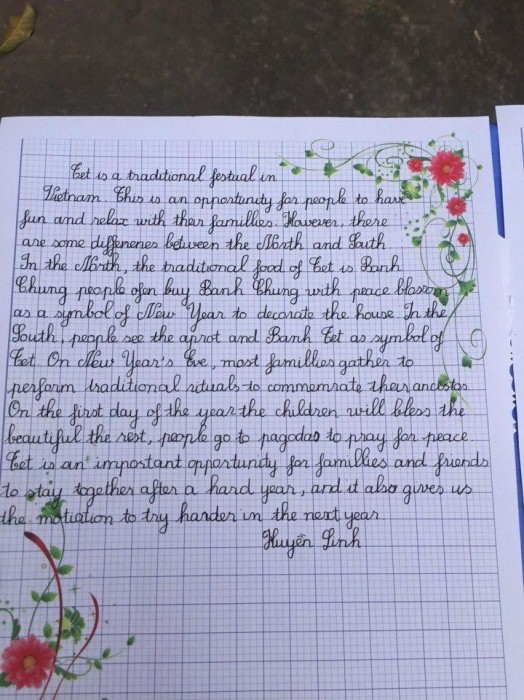 Tet is a traditional festual in
Vietnam. This is an opportunity for people to have
fun and relax with their famillies. However, there
are some differenes between the North and South
In the North, the traditional food of Tet is Banh
Chung people ofen buy Banh Chung with peace blossom
as a symbol of New Year to decorate the house In the
South, people see the aprot and Banh Tet as symbol of
Tet. On New Year's Eve, most famillies gather to
perform traditional rituals to commemrate their ancestos
On the first day of the year the children will bless the
beautiful the rest, people go to pagodas to pray for peace.
Tet is an important opportunity for famillies and friends
to stay together after a hard year, and it also gives us
the motiation to try harder in the next year
Huyền Linh